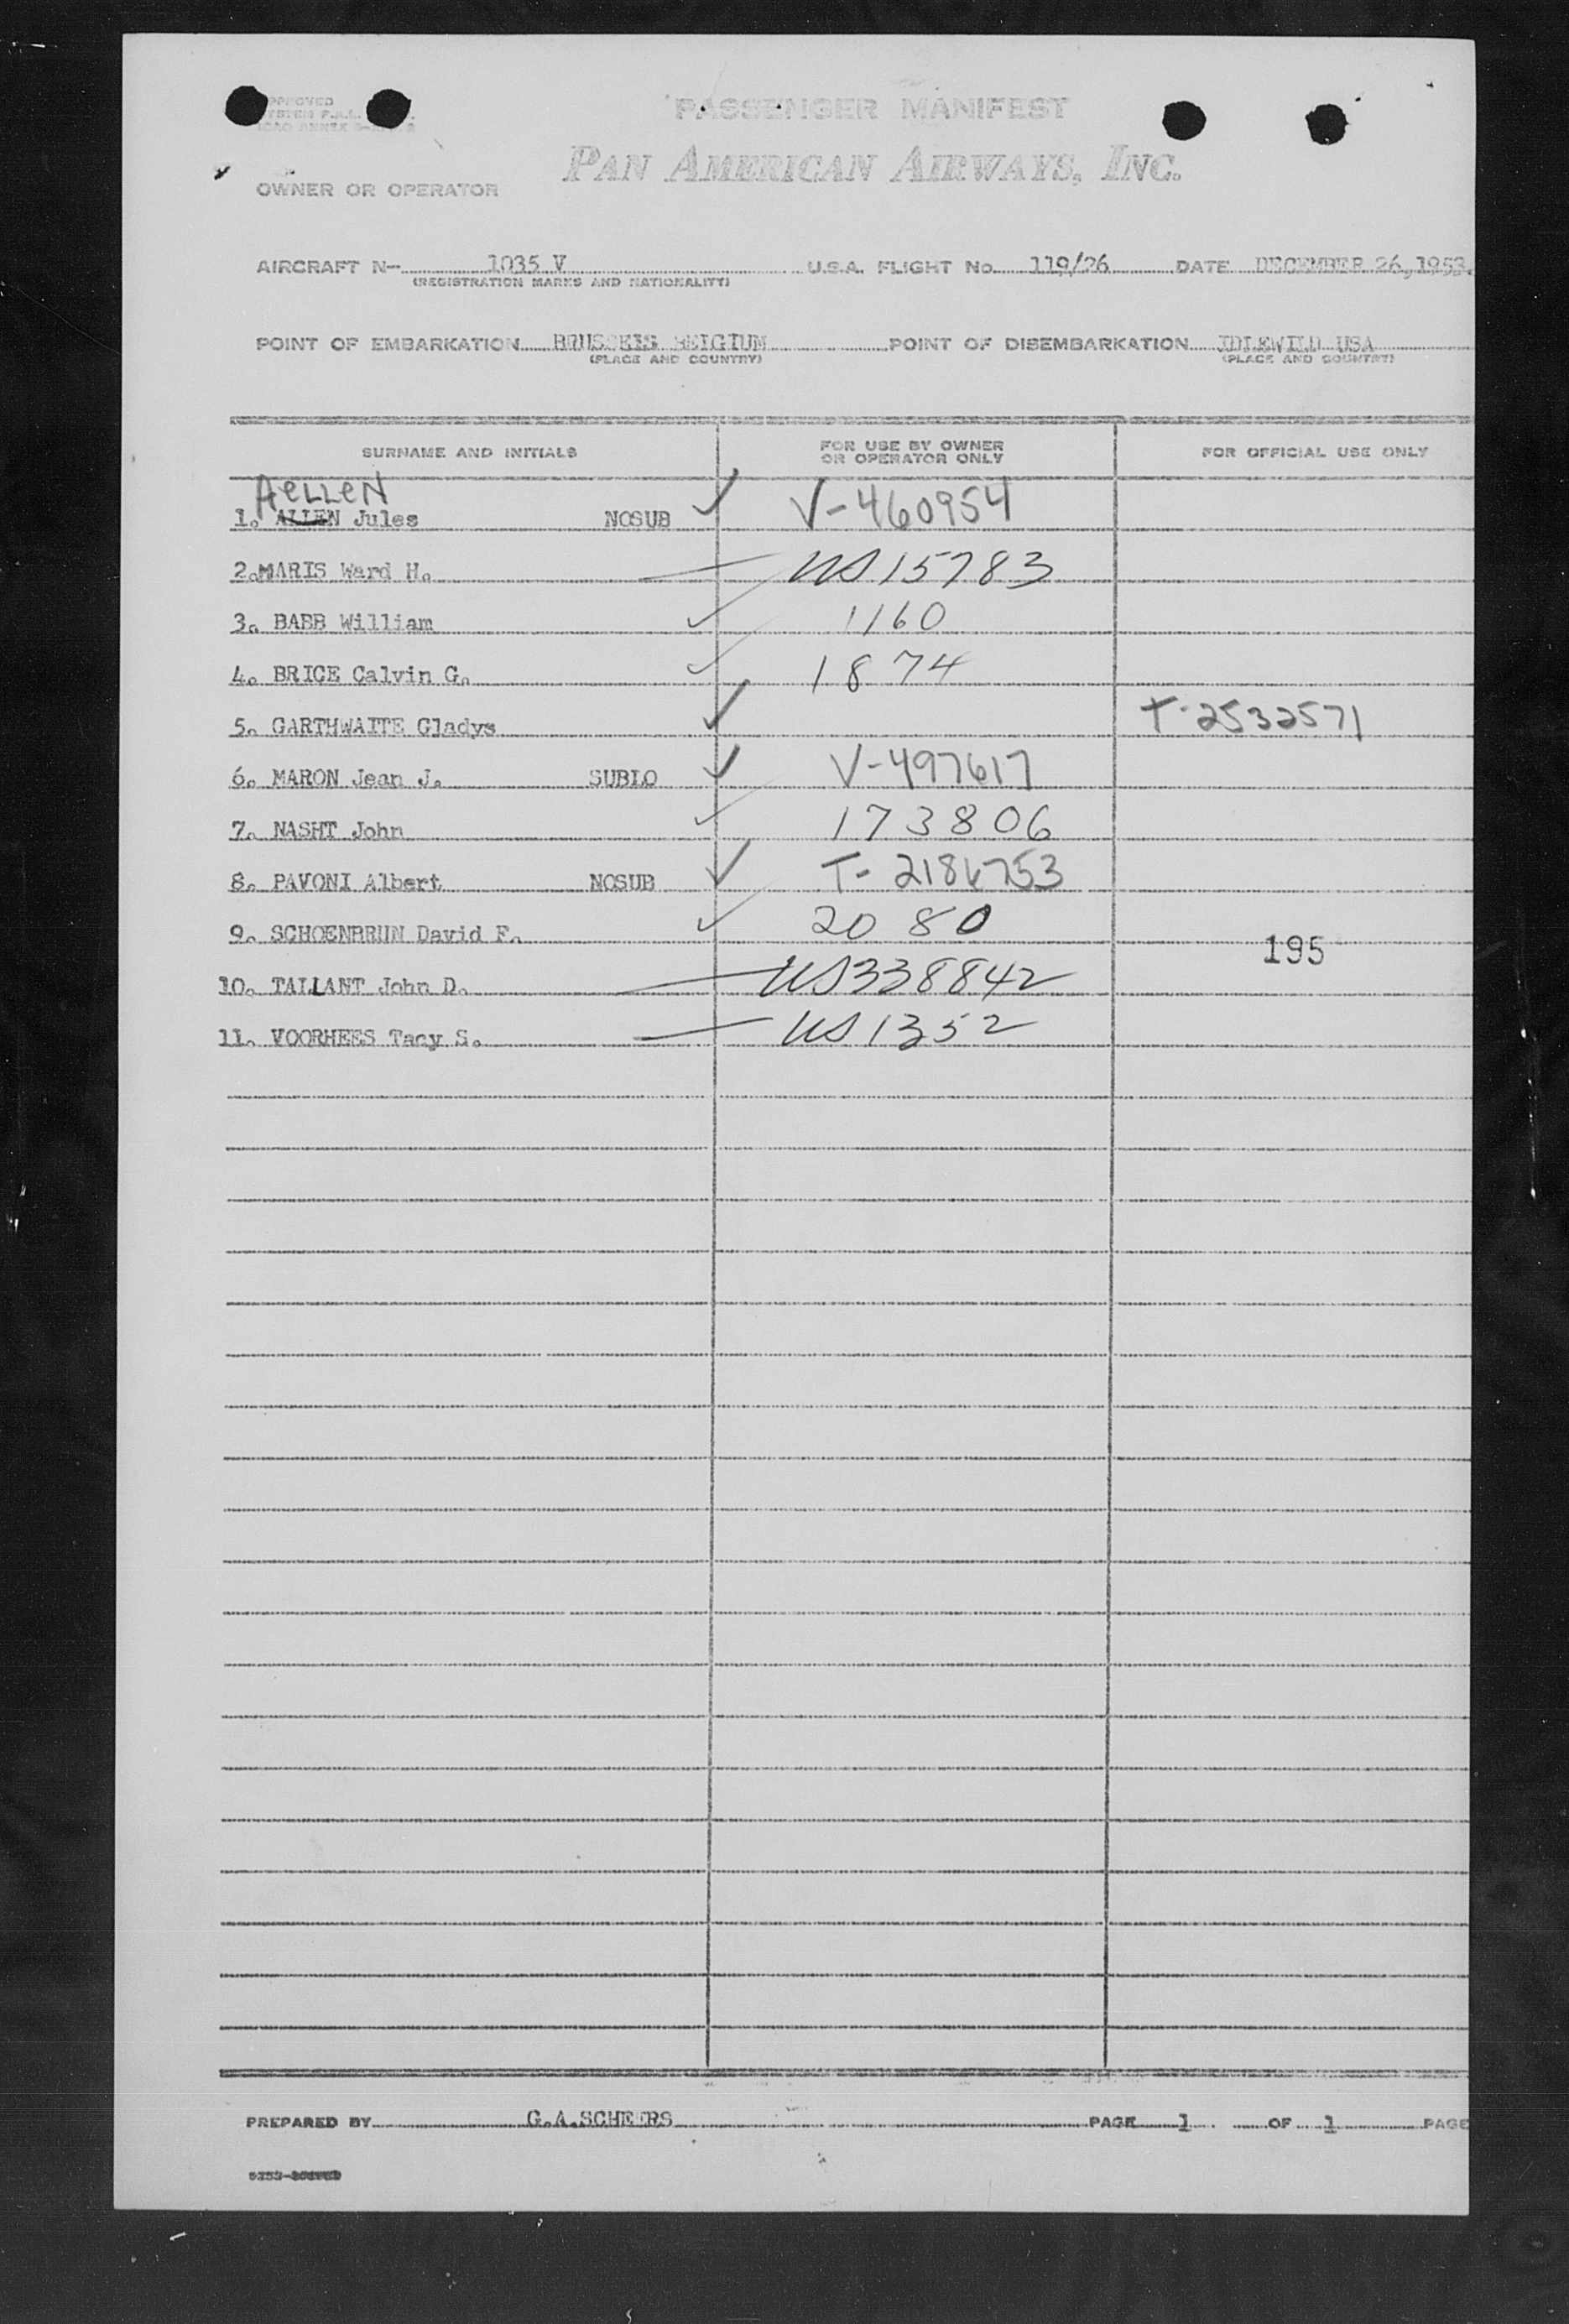 APPROVED
PASSENGER MANIFEST
PAN AMERICAN AIRWAYS, INC.
OWNER OR OPERATOR
AIRCRAFT N- 1035 V U.S.A. FLIGHT No. 119/26 DATE DECEMBER 26, 1953.
(REGISTRATION MARKS AND NATIONALITY)
POINT OF EMBARKATION BRUSSELS BELGIUM POINT OF DISEMBARKATION IDLEWILD USA
(PLACE AND COUNTRY) (PLACE AND COUNTRY)
SURNAME AND INITIALS FOR USE BY OWNER OR OPERATOR ONLY FOR OFFICIAL USE ONLY
AeLLeN
1. ALLEN Jules NOSUB V-460954
2. MARIS Ward H. US 15783
3. BABB William 1160
4. BRICE Calvin G. 1874
5. GARTHWAITE Gladys T-2532571
6. MARON Jean J. SUBLO V-497617
7. NASHT John 173806
8. PAVONI Albert NOSUB T-
9. SCHOENBRUN David F. 2080
195
10. TALLANT John D. US 338842
11. VOORHEES Tacy S. US 1352
PREPARED BY G.A.SCHEERS PAGE 1 OF 1 PAGE